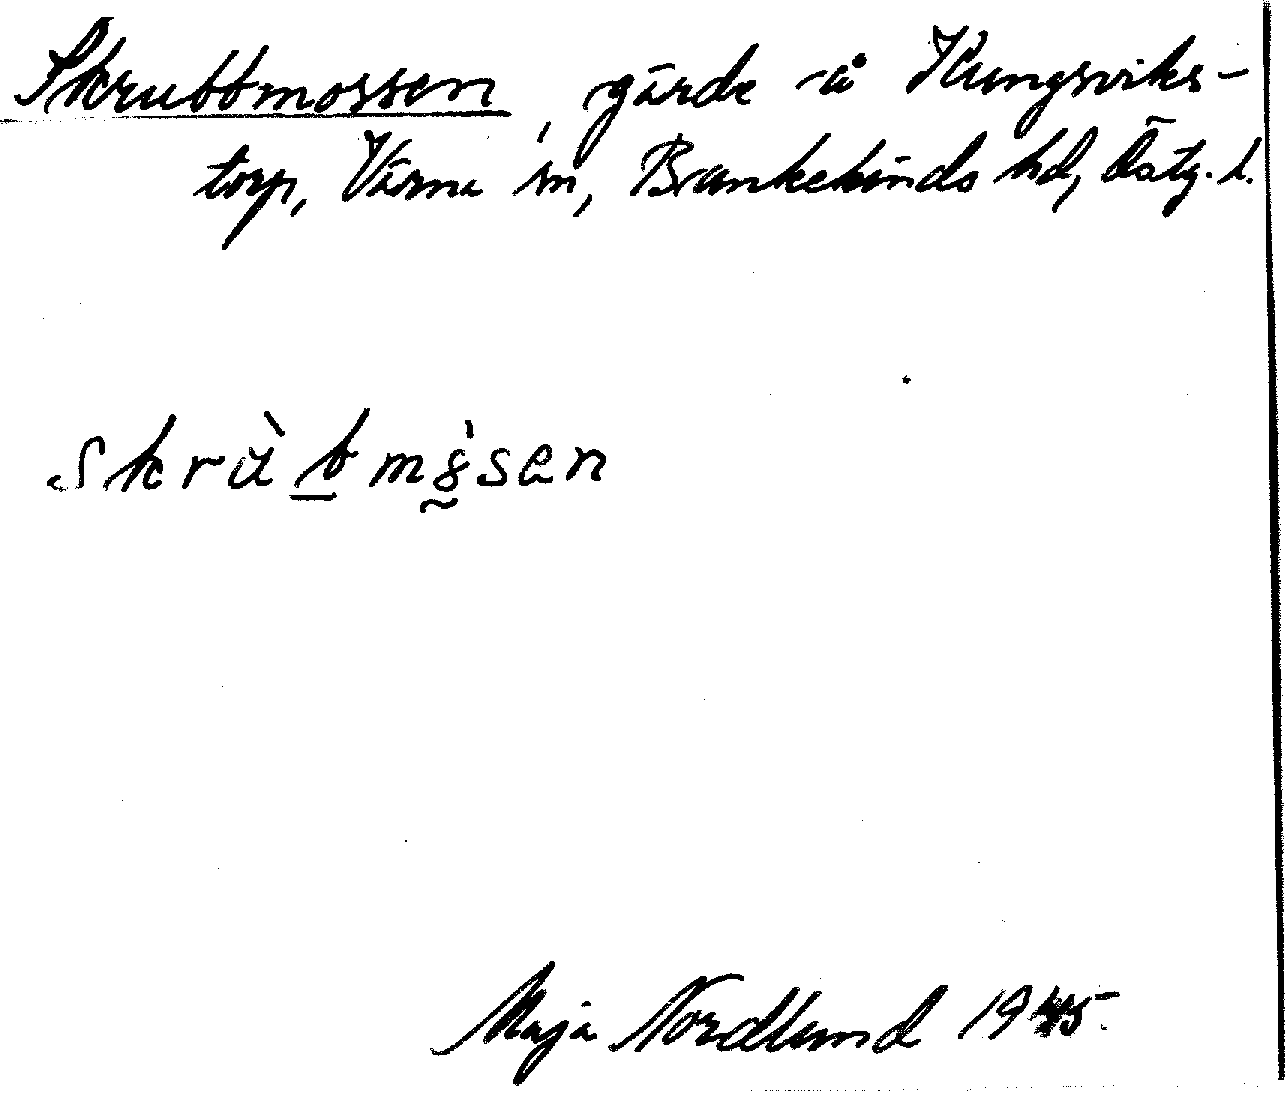 Skrubbmossen, gärde å Kungsviks-
torp, Värna sn, Brankekinds hd, Östg. l.
skrùbmȣ̀sen
Maja Nordlund 1945